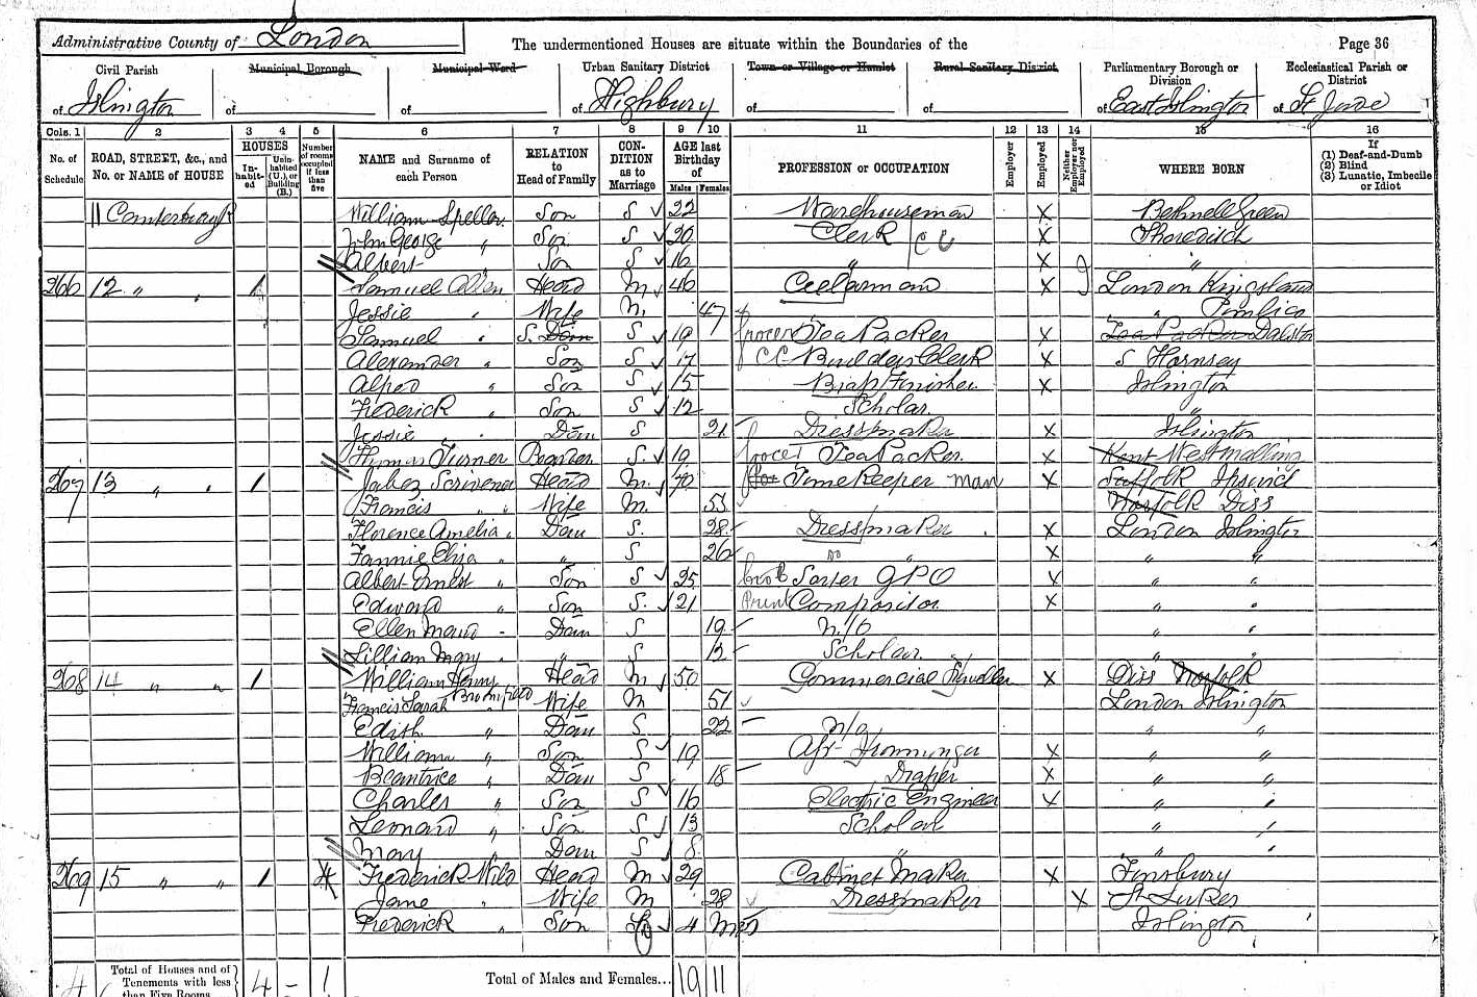 Administrative County of London
The undermentioned Houses are situate within the Boundaries of the
Page 36
Civil Parish of Islington
Municipal Borough of
Municipal Ward of
Urban Sanitary District of Highbury
Town or Village or Hamlet of
Rural Sanitary District of
Parliamentary Borough or Division of East Islington
Ecclesiastical Parish or District of St Jude
Cols. 1 2 3 4 5 6 7 8 9 10 11 12 13 14 15 16
No. of Schedule
ROAD, STREET, &c., and No. or NAME of HOUSE
HOUSES
In-habit-ed
Unin-habited (U.), or Building (B.)
Number of rooms occupied if less than five
NAME and Surname of each Person
RELATION to Head of Family
CON-DITION as to Marriage
AGE last Birthday of
Males Females
PROFESSION or OCCUPATION
Employer
Employed
Neither Employer nor Employed
WHERE BORN
If
(1) Deaf-and-Dumb
(2) Blind
(3) Lunatic, Imbecile or Idiot
11 Canterbury R William Speller Son S 22 Warehouseman X Bethnell Green
John George " Son S 20 Clerk CC X Shoreditch
Albert " Son S 16 " X "
266 12 " " 1 Samuel Allen Head M 46 Cellarman X London Kingsland
Jessie " Wife M. 47 " Pimlico
Samuel " S. Dau S 19 Grocer Tea Packer X Tea Packer Dalston
Alexander " Son S 17 CC Builders Clerk X S Hornsey
Alfred " Son S 15 Brass Finisher X Islington
Frederick " Son S 12 Scholar "
Jessie " Dau S 21 Dressmaker X Islington
Thomas Turner Boarder S. 19 Grocer Tea Packer X Kent West Malling
267 13 " " 1 Jabez Scrivener Head M. 70 Time Keeper man X Suffolk Ipswich
Francis " Wife M. 53 Norfolk Diss
Florence Amelia " Dau S. 28 Dressmaker X London Islington
Fannie Eliza " " S 26 Do " X " "
Albert Ernest " Son S 25 Sorter GPO X " "
Edward " Son S. 21 Print Compositor X " "
Ellen Maud " Dau S 19 N/O " "
Lillian Mary " " S 12 Scholar " "
268 14 " " 1 William Henry Bromfield Head M 50 Commercial X Diss Norfolk
Francis Sarah " Wife M 51 London Islington
Edith " Dau S 22 N/O " "
William " Son S 19 App Ironmonger X " "
Beantrice " Dau S 18 Draper X " "
Charles " Son S 16 Electric Engineer X " "
Leonard " Son S 13 Scholar " "
May " Dau S 8 " " "
269 15 " " 1 4 Frederick Wild Head M 29 Cabinet Maker X Finsbury
Jane " Wife M 28 Dressmaker X St Lukes
Frederick " Son S 4 Mos Islington
4 Total of Houses and of Tenements with less than Five Rooms 4 - 1
Total of Males and Females... 19 11